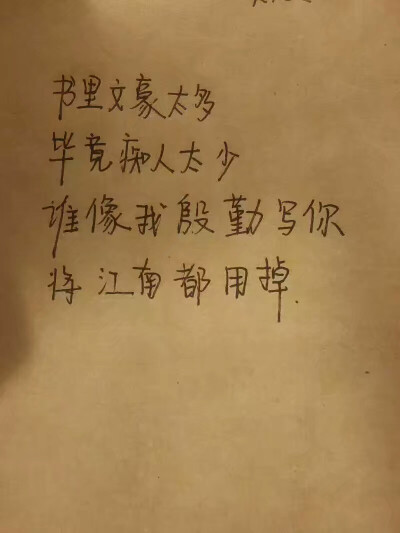 书里文豪太多
毕竟痴人太少
谁像我殷勤写你
将江南都用掉.